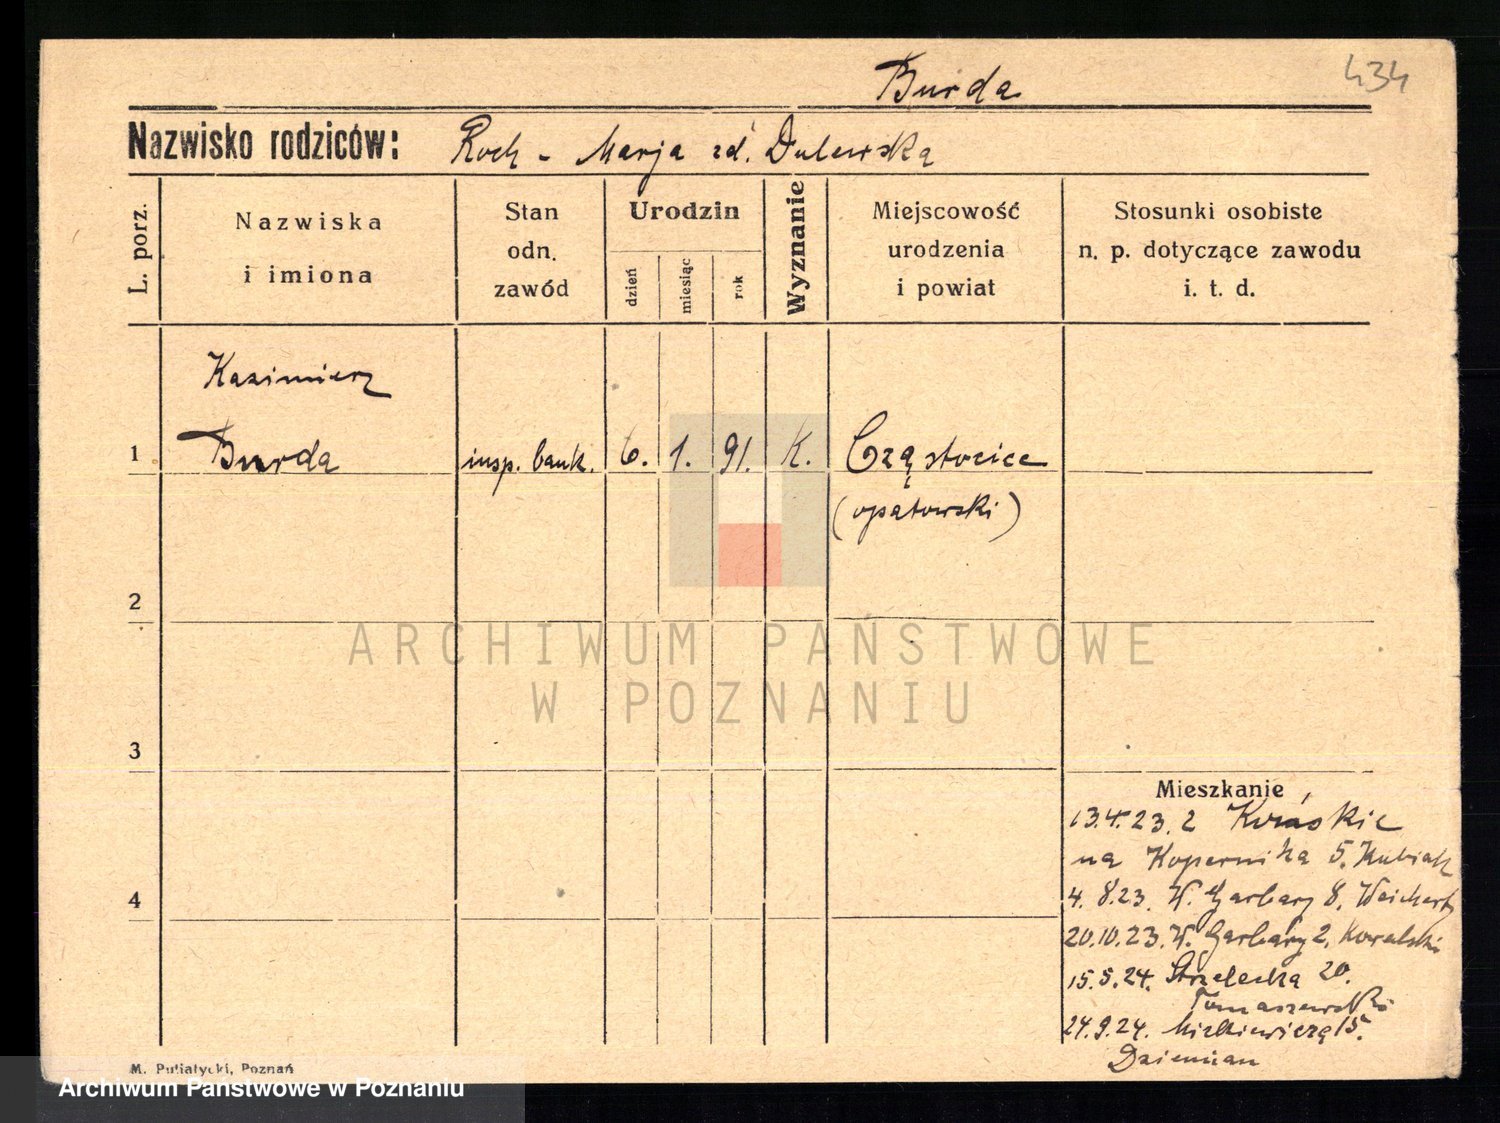 Burda
434
Nazwisko rodziców: Roch - Marja zd. Dulewska
L. porz.
Nazwiska
i imiona
Stan
odn.
zawód
Urodzin
dzień
miesiąc
rok
Wyznanie
Miejscowość
urodzenia
i powiat
Stosunki osobiste
n. p. dotyczące zawodu
i. t. d.
Kazimierz
1 Burda insp. bank. 6. 1. 91. K. Cząstocice
(opatowski)
2
ARCHIWUM PAŃSTWOWE
W POZNANIU
3
4
Mieszkanie
13.4.23. z
na Kopernika 5. Kubiak
4. 8.23. W. Garbary 8, Weichert
20.10.23. W. Garbary 2, Kowalski
15.5.24. Strzelecka 20.
Tomaszewski
24.9.24. Mickiewicza 15.
Dziemian
M. Putiatycki, Poznań
Archiwum Państwowe w Poznaniu